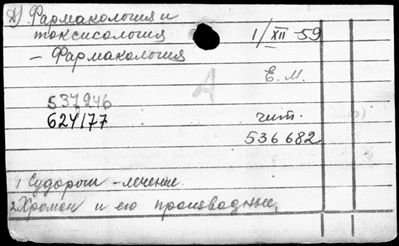 Д) Фармакология и
токсикология 1/XII-59
- Фармакология
Е.М.
А
537946
624177 чит.
536682
1 Судороги - лечение
2 Хромон и его производные,